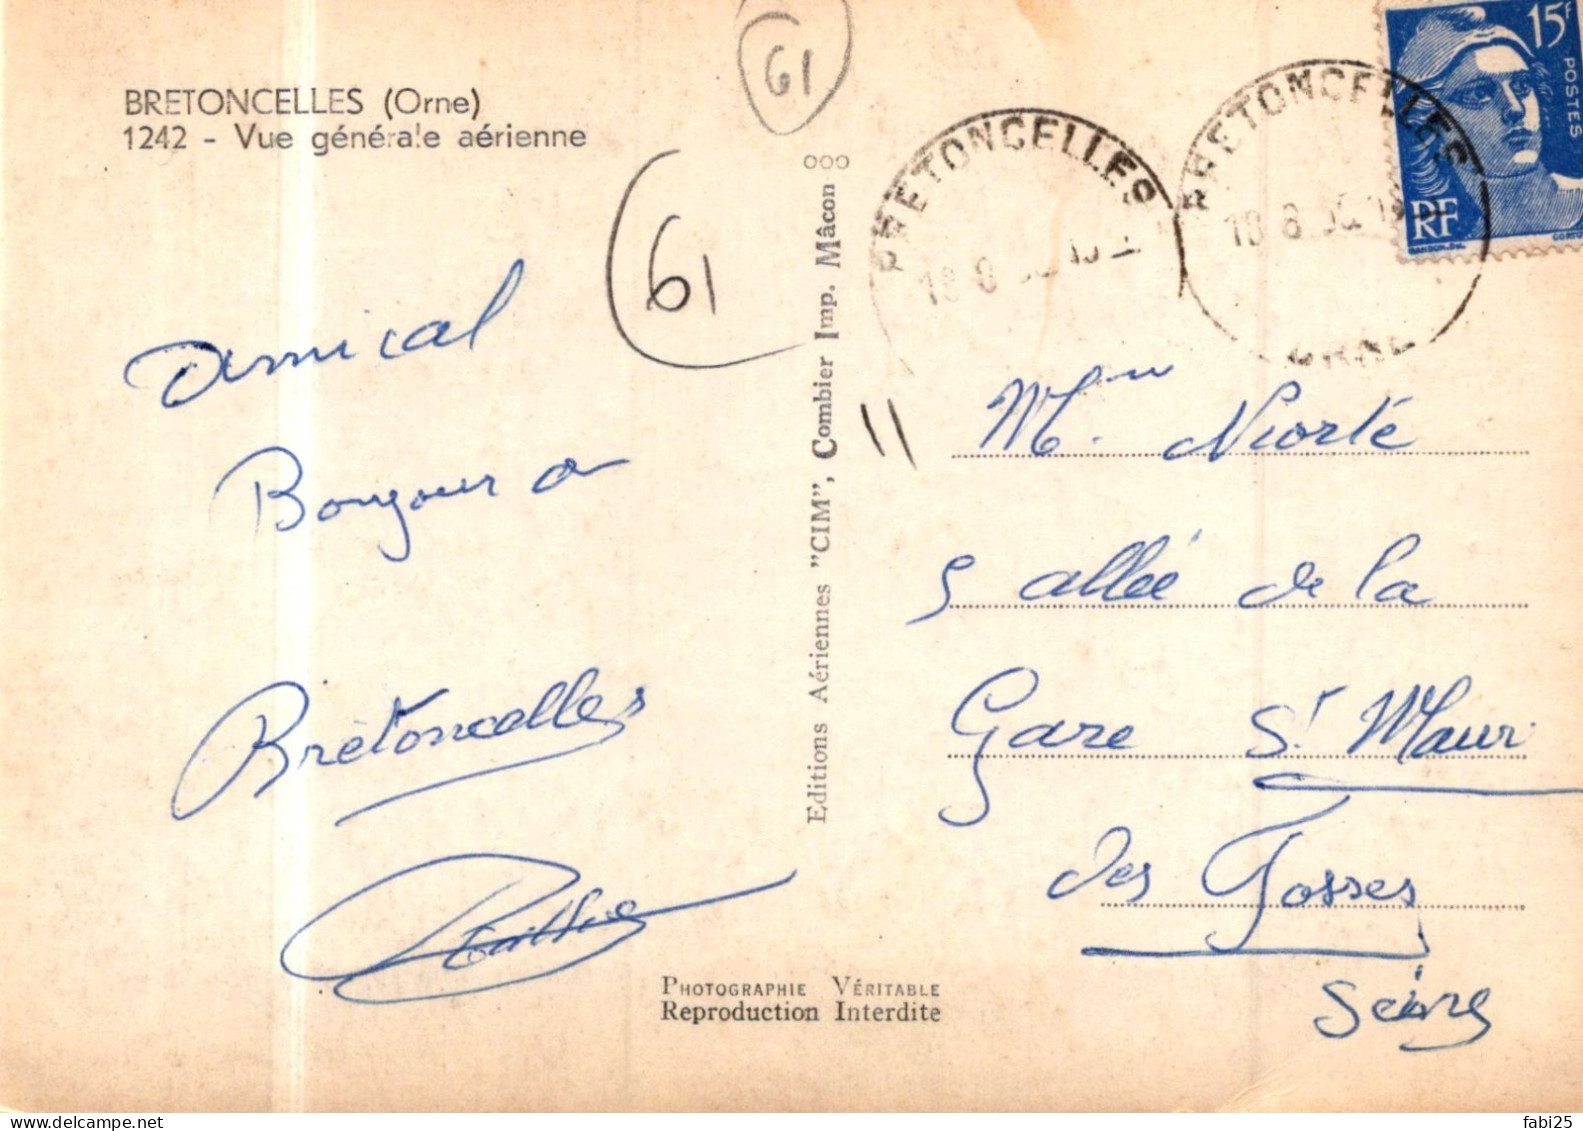 BRETONCELLES (Orne)
1242 - Vue générale aérienne
61
61
amical
Bonjour de
Bretoncelles
Editions Aériennes "CIM", Combier Imp. Mâcon
BRETONCELLES
18 8
BRETONCELLES
18 8
ORNE
15F
POSTES
RF
Niorté
5 allée de la
Gare St Maur
des Fosses
Seine
PHOTOGRAPHIE VÉRITABLE
Reproduction Interdite
fabi25